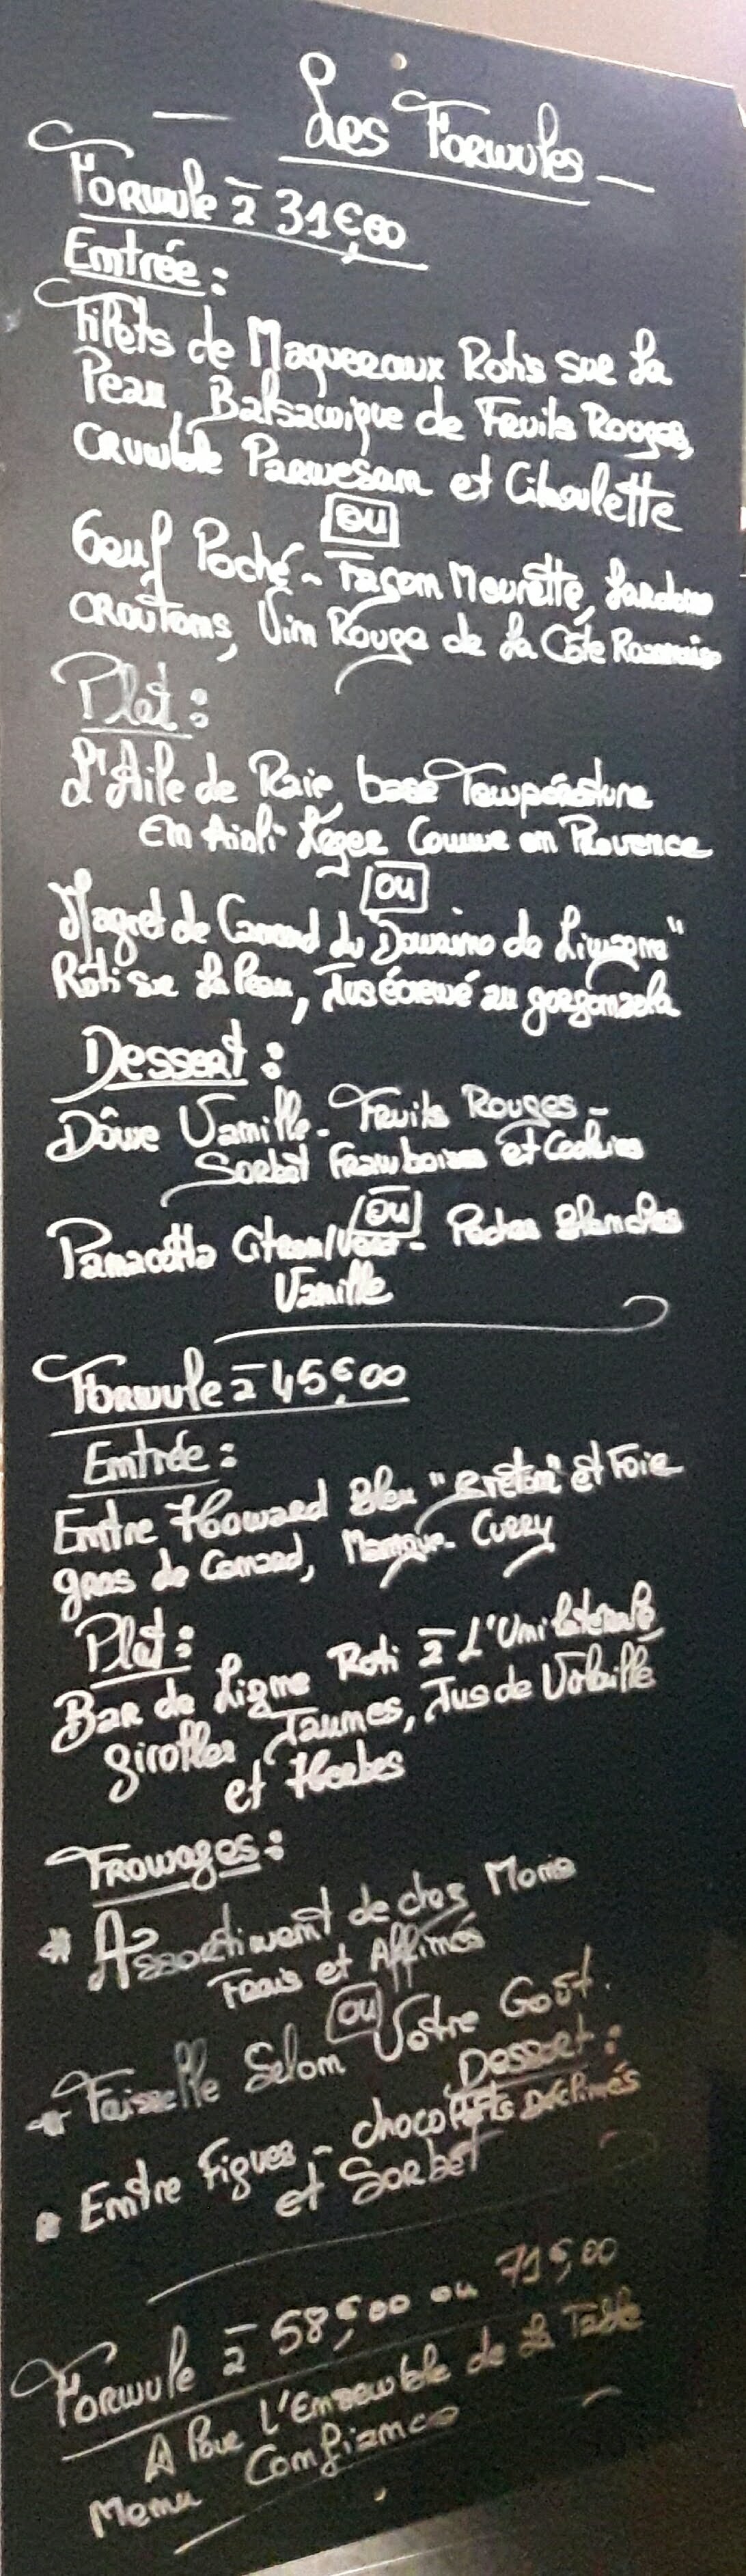 Les Formules
Formule à 31€,00
Entrée :
Filets de Maquereaux Rotis sur La
Peau, Balsamique de Fruits Rouges,
Crumble Parmesan et Ciboulette
ou
Oeuf Poché - Façon Meurette, Lardons
croutons, Vin Rouge de La Côte Roannaise
Plat :
L'Aile de Raie, basse Température
En Aioli Léger Comme en Provence
ou
Magret de Canard du "Domaine de Limagne"
Rôti sur La Peau, Jus écremé au gorgonzola
Dessert :
Dôme Vanille - Fruits Rouges -
Sorbet Framboises et Cookies
ou
Panacotta Citron/Vert - Pêches Blanches
Vanille
Formule à 45€,00
Entrée :
Entre Homard Bleu "Breton" et Foie
gras de Canard, Mangue - Curry
Plat :
Bar de Ligne Roti à L'Unilatérale,
girolles Jaunes, Jus de Volaille
et Herbes
Fromages :
* Assortiment de chez Mons
Frais et Affinés
ou
* Faisselle Selon Votre Goût.
Dessert :
* Entre Figues - chocolats Déclinés
et Sorbet
Formule à 58€,00 ou 71€,00
A Pour L'Ensemble de La Table
Menu Confiance